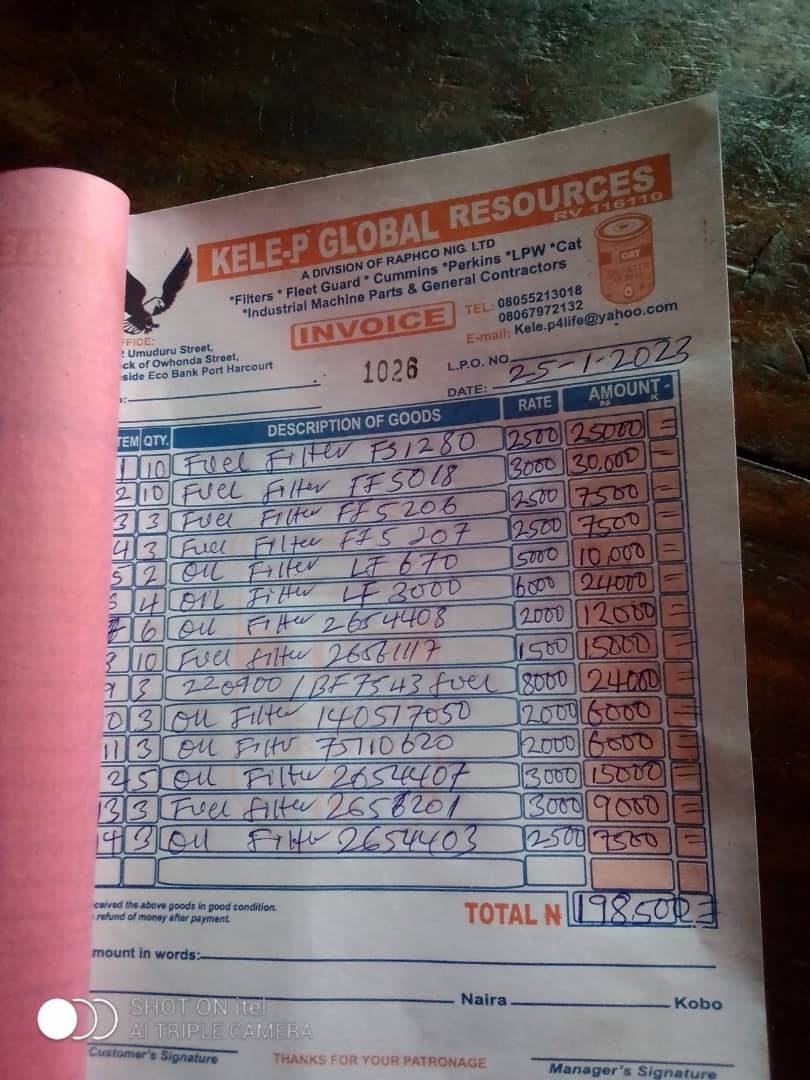 KELE-P GLOBAL RESOURCES
RV 116110
A DIVISION OF RAPHCO NIG. LTD
*Filters * Fleet Guard * Cummins *Perkins *LPW *Cat
*Industrial Machine Parts & General Contractors
CAT
INVOICE
TEL: 08055213018
08067972132
E-mail: Kele.p4life@yahoo.com
FFICE:
Umuduru Street,
ck of Owhonda Street,
side Eco Bank Port Harcourt
1026
L.P.O. NO
DATE: 25-1-2023
TEM QTY. DESCRIPTION OF GOODS RATE AMOUNT
N K
1 10 Fuel Filter FS1280 2500 25000 =
2 10 Fuel Filter FF5018 3000 30,000 =
3 3 Fuel Filter FF5206 2500 7500 =
4 3 Fuel Filter FF5207 2500 7500 =
5 2 Oil Filter LF670 5000 10,000 =
4 OIL Filter LF3000 6000 24000 =
6 Oil Filter 2654408 2000 12000 =
10 Fuel filter 26561117 1500 15000 =
9 3 220900/BF7543 fuel 8000 24000 =
0 3 Oil Filter 140517050 2000 6000 =
11 3 Oil Filtr 75110620 2000 6000 =
2 5 Oil Filter 2654407 3000 15000 =
13 3 Fuel filter 3000 9000 =
14 3 Oil Filter 2654403 2500 7500 =
ceived the above goods in good condition.
refund of money after payment.
TOTAL N 198,500=
mount in words:
Naira Kobo
Customer's Signature
THANKS FOR YOUR PATRONAGE
Manager's Signature
SHOT ON itel
AI TRIPLE CAMERA